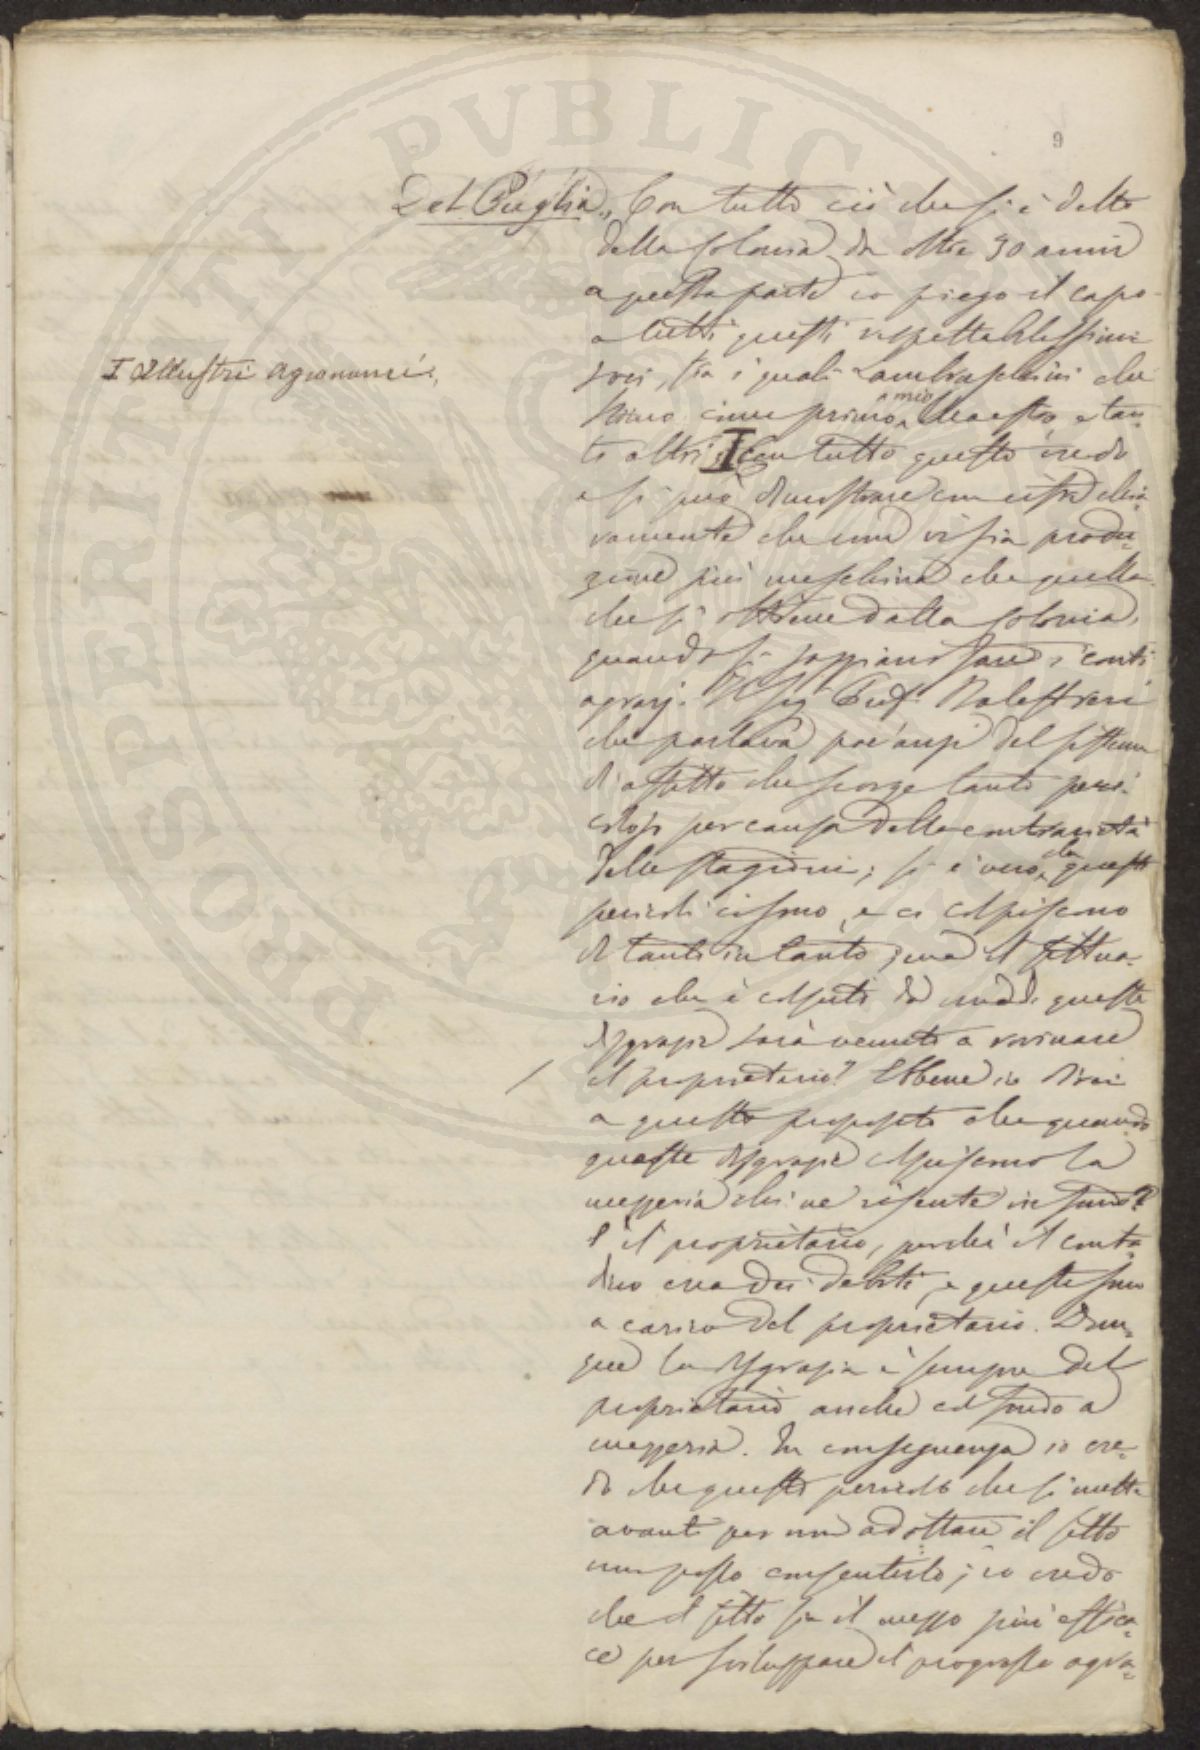 9
Del Puglia „ Con tutto ciò che si è detto
della Colonia da oltre 30 anni
a questa parte io piego il capo
a tutti questi rispettabilissimi
I illustri agronomi,
soci, fra i quali Lambruschini che
stimo come primo a mio Maestro, e tan-
ti altri; I Con tutto questo credo
e si può dimostrare con cifre chia-
ramente che non vi sia produ-
zione più meschina che quella
che si ottiene dalla Colonia,
quando si sappiano fare i conti
agrarj. Il Sig. Balestreri
che parlava poc'anzi del sistema
d'affitto che scorge tanto peri-
coloso per causa della contrarietà
delle stagioni; si è vero che questi
pericoli ci sono, e ci colpiscono
di tanto in tanto; ma il fittua-
rio che è colpito da una di queste
disgrazie sarà venuto a rovinare
il proprietario? Ebbene io dirai
a questo proposito che quando
queste disgrazie colpiscono la
mezzeria chi ne risente in fondo?
è il proprietario, perchè il conta-
dino crea dei debiti, e questi sono
a carico del proprietario. Dun-
que la disgrazia è sempre del
proprietario anche col fondo a
mezzeria. In conseguenza io cre-
do che questo pericolo che si mette
avanti per non adottare il fitto
non posso consentirlo; io credo
che il fitto sia il mezzo più effica-
ce per sviluppare il progresso agra-